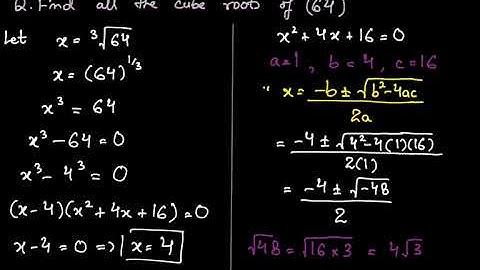 Q. Find all the cube roots of (64)
Let x = ∛64
x = (64)^1/3
x³ = 64
x³ - 64 = 0
x³ - 4³ = 0
(x-4)(x²+4x+16) = 0
x-4 = 0 => x = 4
x² + 4x + 16 = 0
a=1, b = 4, c = 16
∵ x = -b ± √b²-4ac / 2a
= -4 ± √4²-4(1)(16) / 2(1)
= -4 ± √-48 / 2
√48 = √16×3 = 4√3